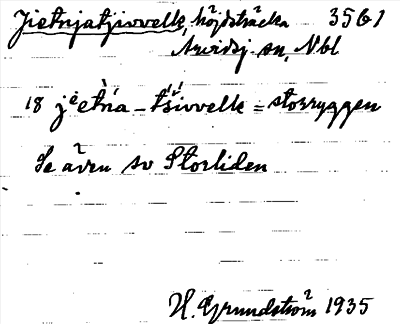 Jietnjatjivvelk, höjdsträcka 3561
Arvidsj. sn, Nbl
18 jẹetńa-tśivvelk = storryggen
Se även sv Storliden
H. Grundström 1935